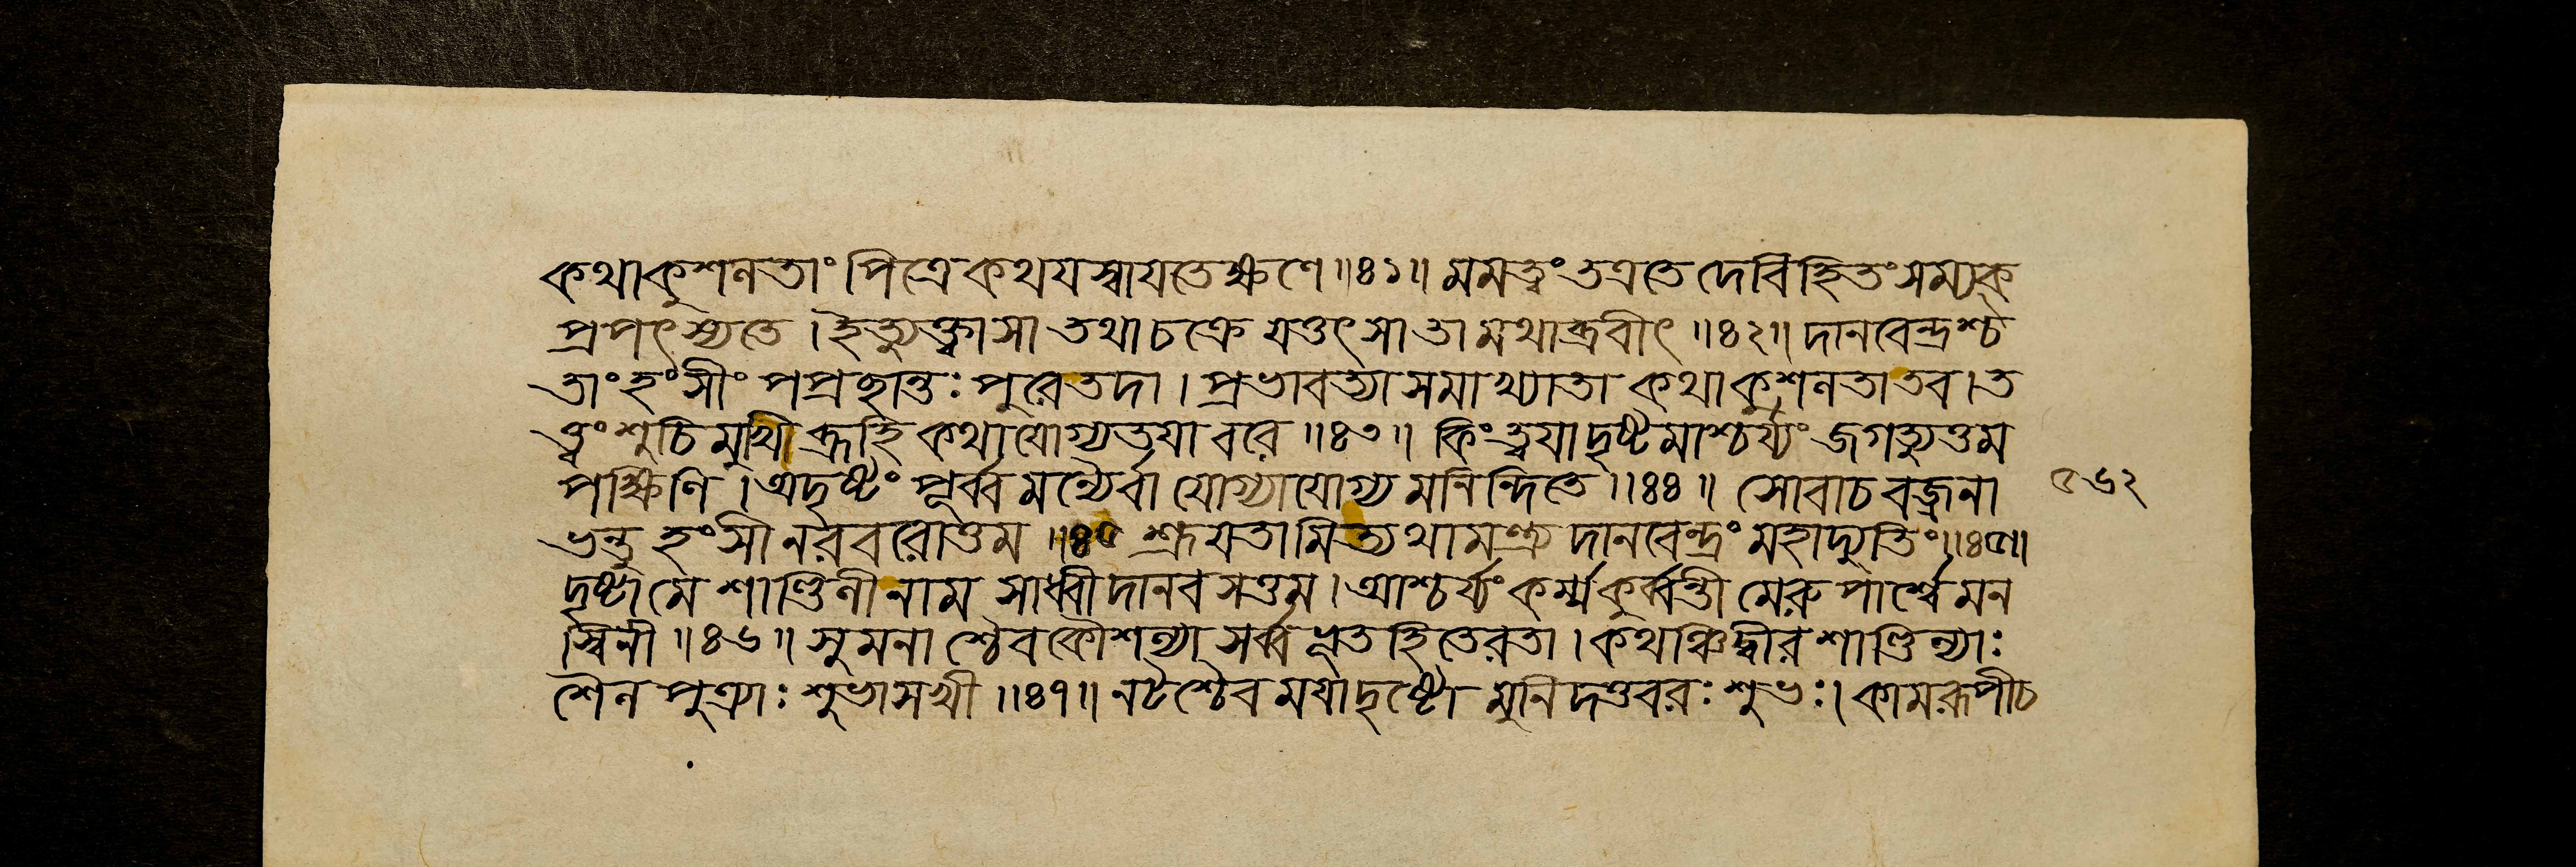 কথাকুশলতাং পিত্রে কথযস্বাযতেক্ষণে ॥৪১॥ মমত্বং তত্রতে দেবিহিতং সম্যক্
প্রপৎশ্যতে । ইত্যুক্ত্বাসা তথাচক্রে যত্তৎ সা তামথাব্রবীৎ ॥৪২॥ দানবেন্দ্রশ্চ
তাং হংসীং পপ্রছান্তঃ পুরেতদা । প্রভাবত্যাসমাখ্যাতা কথাকুশলতাতব । ত
ত্ত্বং শুচিমুখীব্রূহি কথাযোগ্যতযা বরে ॥৪৩॥ কিং ত্বযাদৃষ্টমাশ্চর্য্যং জগত্যুত্তম
পক্ষিণি । অদৃষ্টং পূর্ব্বমন্যৈর্বা যোগ্যাযোগ্যমনিন্দিতে ॥৪৪॥ সোবাচ বজ্রনা ৫৬২
ভন্তু হংসী নরবরোত্তম ॥৪৫ শ্রূযতামিত্যথামন্ত্র্য দানবেন্দ্রং মহাদ্যুতিং ॥৪৫॥
দৃষ্টামে শাণ্ডিলীনাম সাধ্বীদানবসত্তম । আশ্চর্য্যং কর্ম্মকুর্ব্বন্তী মেরুপার্শ্বেমন
স্বিনী ॥৪৬॥ সুমনাশ্চৈবকৌশল্যা সর্ব্বভূতহিতেরতা । কথঞ্চিদ্বীর শাণ্ডিল্যাঃ
শৈলপুত্র্যাঃ শুভাসখী ॥৪৭॥ নটশ্চৈবমযাদৃষ্টো মুনিদত্তবরঃ শুভঃ । কামরূপীচ